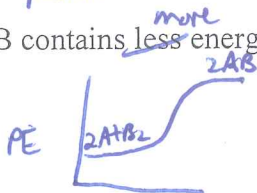 more
B contains less energ
2AB
2A+B2
PE